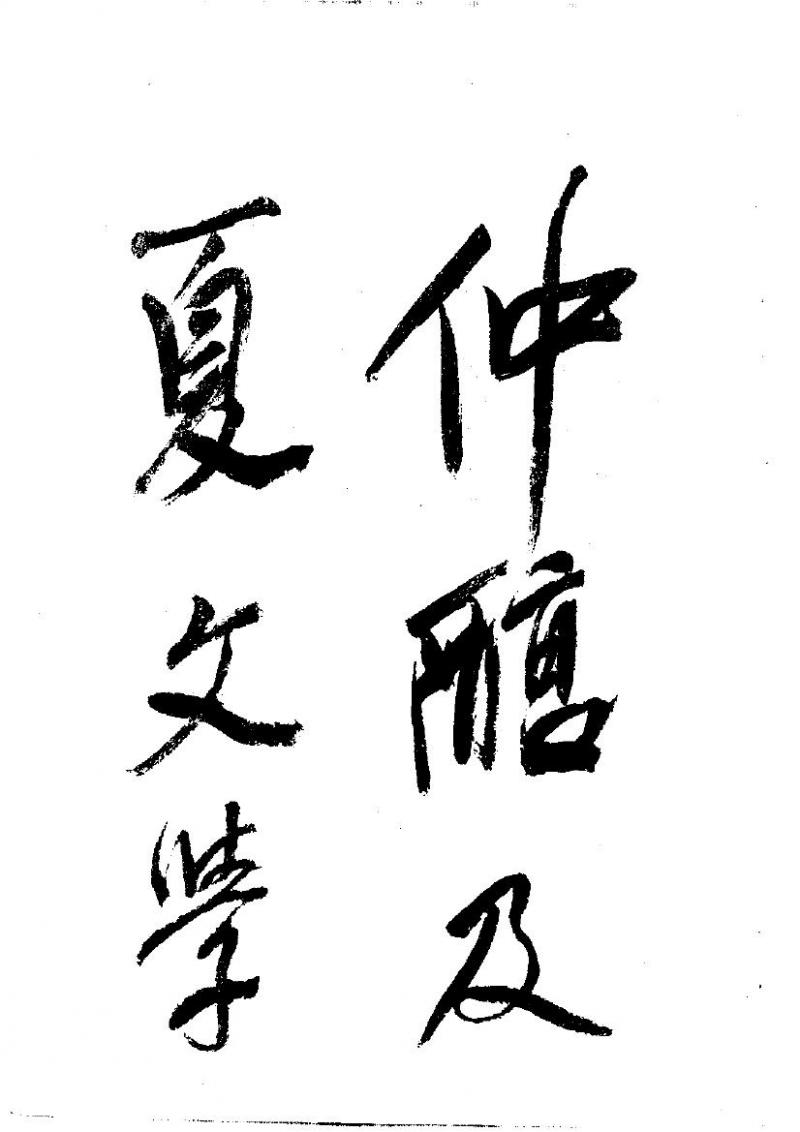 仲醇及
夏文學